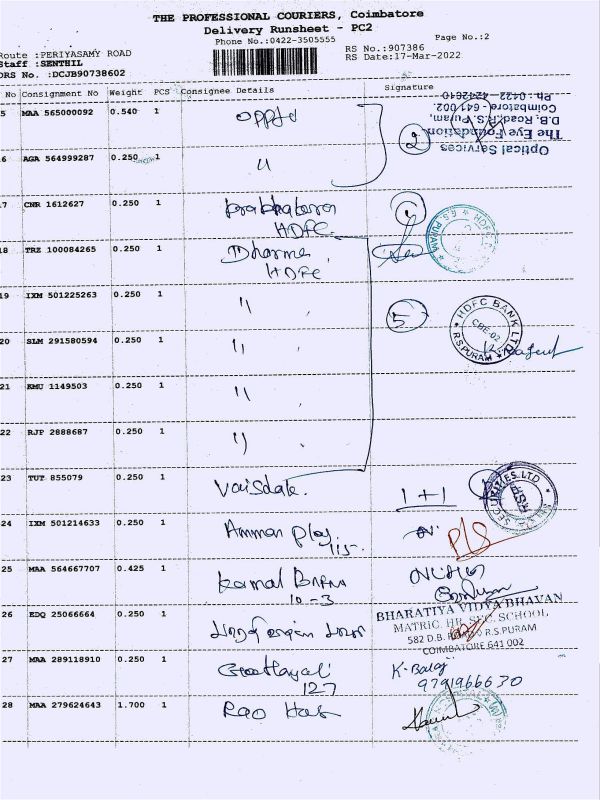 THE PROFESSIONAL COURIERS, Coimbatore
Delivery Runsheet - PC2
Phone No.:0422-3505555
Page No.:2
Route :PERIYASAMY ROAD
RS No.:907386
Staff :SENTHIL
RS Date:17-Mar-2022
DRS No. :DCJB90738602
No Consignment No Weight PCS Consignee Details Signature
5 MAA 565000092 0.540 1
Optical Services
The Eye Foundation
D.B. Road, R.S. Puram,
Coimbatore - 641 002.
Ph: 0422 - 4242610
2
6 AGA 564999287 0.250 1 "
17 CNR 1612627 0.250 1 Prabhakaran
HDFC
1
R.S. PURAM
18 TRZ 100084265 0.250 1 Dharma,
HDFC
19 IXM 501225263 0.250 1 "
5
HDFC BANK LTD
CBE-02
R.S PURAM
20 SLM 291580594 0.250 1 "
21 KMU 1149503 0.250 1 "
22 RJP 2888687 0.250 1 "
23 TUT 855079 0.250 1
1+1
SECURITIES LTD
24 IXM 501214633 0.250 1 Amman
115
P/S
25 MAA 564667707 0.425 1 Kamal
10-3
26 EDQ 25066664 0.250 1
BHARATIYA VIDYA BHAVAN
MATRIC. HR. SEC. SCHOOL
582 D.B. ROAD R.S.PURAM
COIMBATORE 641 002
27 MAA 289118910 0.250 1
127
K-Balaji
9791966630
28 MAA 279624643 1.700 1 Rao